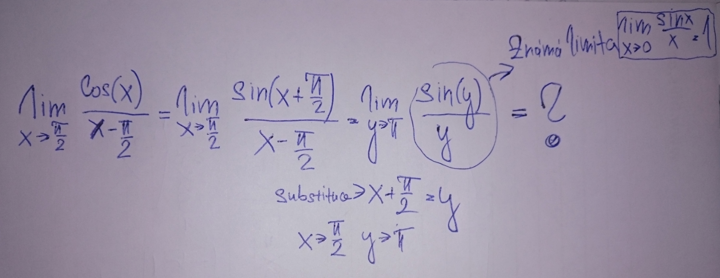 Známá limita lim x→0 sinx/x = 1
lim x→π/2 cos(x)/(x-π/2) = lim x→π/2 sin(x+π/2)/(x-π/2) = lim y→π sin(y)/y = ?
substituce→ x+π/2 = y
x→π/2 y→π